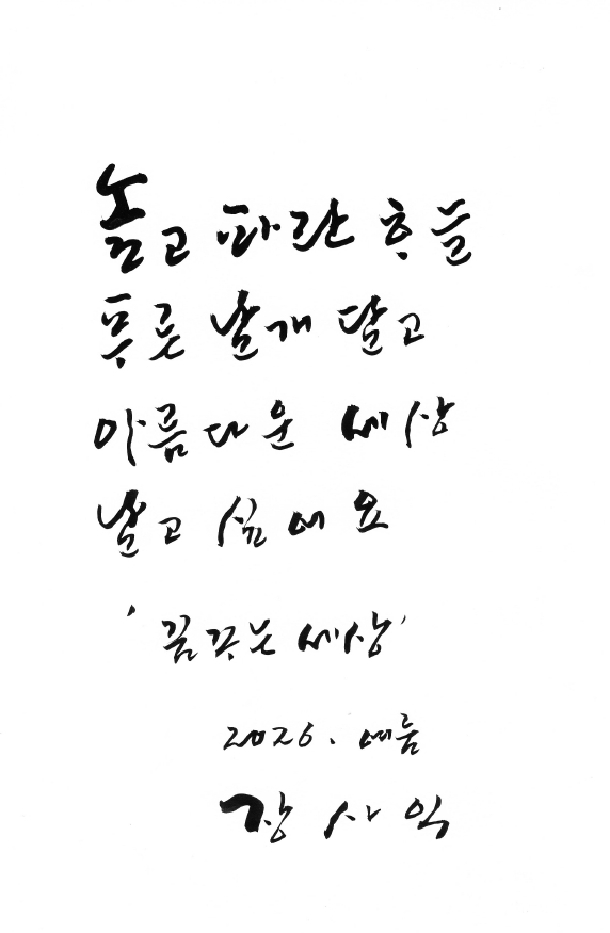 높고 파란 ᄒᆞ늘
푸른 날개 달고
아름다운 세상
날고 싶어요
'꿈꾸는 세상'
2026. 여름
장사익